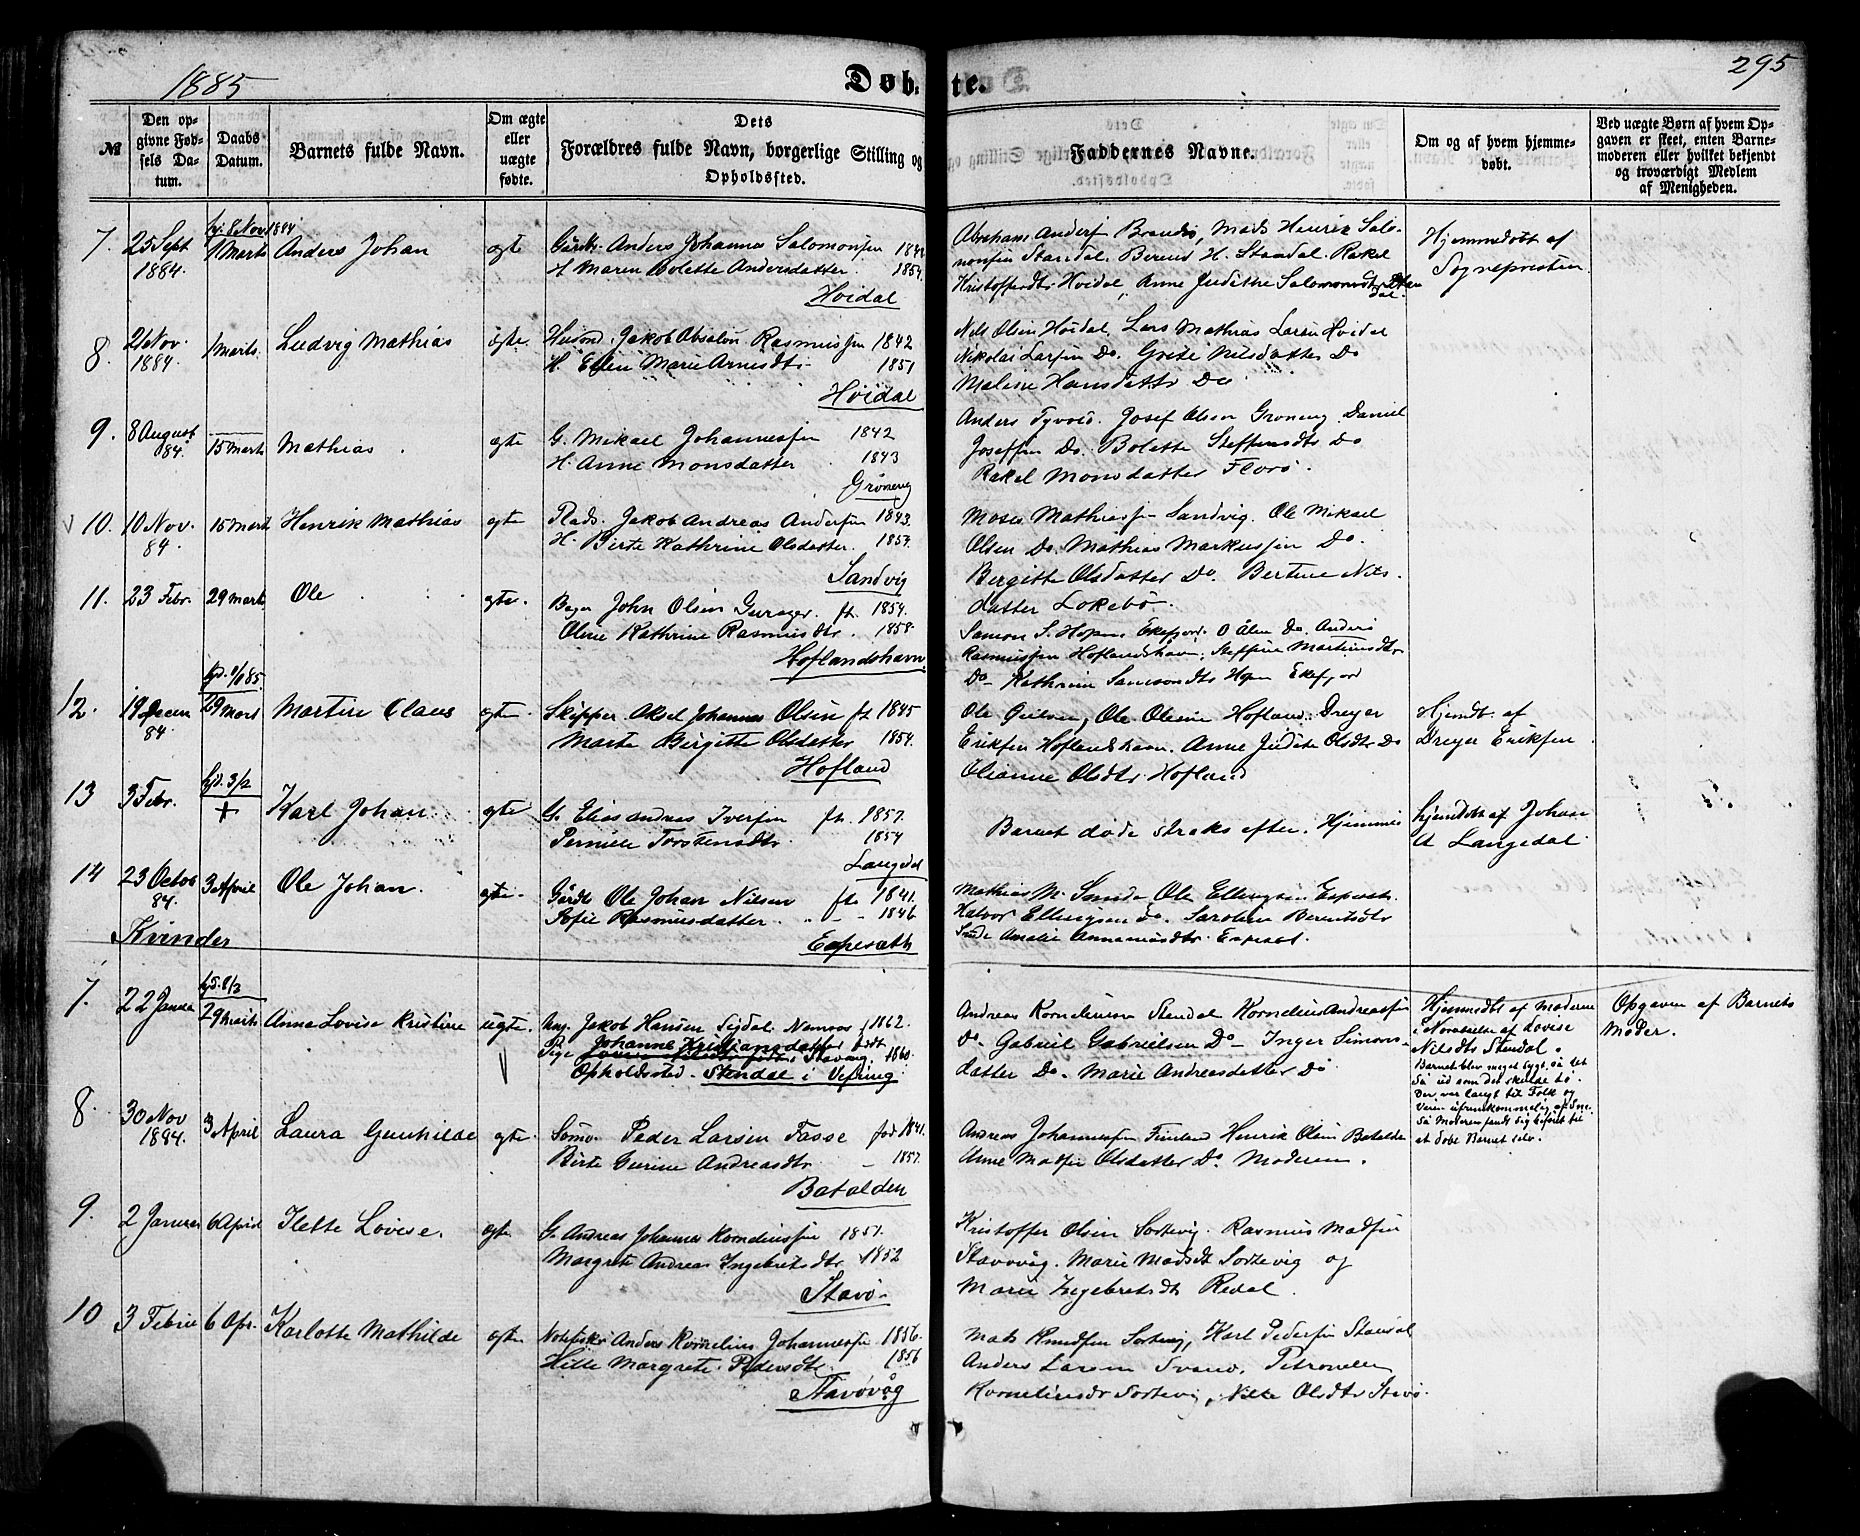 1885
Døbte.
295
№
Den opgivne Fødsels Datum.
Daabs Datum.
Barnets fulde Navn.
Om ægte eller uægte fødte.
Dets Forældres fulde Navn, borgerlige Stilling og Opholdssted.
Faddernes Navne.
Om og af hvem hjemmedøbt.
Ved uægte Børn af hvem Opgaven er skeet, enten Barnemoderen eller hvilket bekjendt og troværdigt Medlem af Menigheden.
7. 25 Sept 1884. hj. 8 Nov 1884 1 Marts Anders Johan ægte
Anders Johannes Salomonsen
H. Maren Bolette Andersdatter. 1854.
Hvidal
Abraham Andersf Brandsø, Mads Henrik Salo-
monsen Standal. Berent H. Standal. Rakel
Kristoffersdtr Hvidal, Anne Judithe Salomonsdtr Standal.
Hjemmedøbt af
Sognepresten
8. 21 Nov. 1884. 1 Marts. Ludvig Mathias ægte.
Husmd. Jakob Absalon Rasmussen 1842
H. Elen Marie Arnesdtr 1851
Hvidal
Nils Olsen Hvidal, Lars Mathias Larsen Hvidal
Nikolai Larsen Do. Grete Nilsdatter Do
Malene Hansdatter Do
9. 8 August 84. 15 Marts Mathias ægte
G. Mikael Johannessen 1842
H. Anne Monsdatter 1843
Grøneng
Anders Tyvold. Josef Olsen Grøneng Daniel
Josefsen Do. Bolette Steffensdtr Do
Rakel Monsdatter Florø.
10. 10 Nov. 84. 15 Marts Henrik Mathias ægte
Plads. Jakob Andreas Andersen 1843.
H. Birte Kathrine Olsdatter. 1854.
Sandvig
Moses Mathiassen Sandvig. Ole Mikael
Olsen Do. Mathias Markussen Do.
Birgitte Olsdatter Do. Bertine Nils-
datter Lokebø.
11. 23 Febr. 29 Marts Ole ægte.
John Olsen ft. 1854.
Oline Kathrine Rasmusdtr. 1858.
Hoflandshavn
Samson S. Hopen Ekefjord. O Ålen Do. Anders
Rasmussen Hoflandshavn. Steffine Martinusdtr
Do Kathrine Samsonsdtr Hopen Ekefjord
12. 19 Decem 84. hjd. 1/1 85. 29 Mars Martin Claus ægte
Skipper Aksel Johannes Olsen ft 1845
Marte Birgitte Olsdatter 1854.
Hofland
Ole Ole Olsen Hofland. Dreyer
Eriksen Hoflandshavn. Anne Judite Olsdtr Do
Olianne Olsdtr Hofland
Hjemdt. af
Dreyer Eriksen
13 3 Febr. hjd. 3/2 + Karl Johan ægte
G. Elias Andreas Iversen ft. 1857.
Pernille Torstensdtr. 1854
Langedal
Barnet døde straks efter. Hjemme
hjemdøbt af Johan
A Langedal
14 23 Octob 84. 3 April Ole Johan. ægte.
Gårdb Ole Johan Nilsen ft. 1841.
Sofie Rasmusdatter. 1846
Espesæth
Mathias M. Ole Ellingsen Espeseth
Halvor Ellingsen Do. Caroline Berentsdtr
Amalie Annanisdtr Espeset.
Kvinder
7. 22 Janua hjd. 8/3 29 Marts Anna Lovise Kristine uægte.
Ung. Jakob Hansen Sigdal Namsos f 1862.
Pige Johanne Kristiansdatter født i Stavang. 1860.
Opholdssted. Stendal i Vefring
Andreas Kornelsen Stendal Kornelius Andreassen
Do. Gabriel Gabrielsen Do Inger Simons-
datter Do. Marie Andreasdatter Do
Hjemmedt af Moderen
i Nærværelse af Lovise
Nilsdtr Stendal.
Barnet blev meget sygt, så det
så ud som det skulde dø.
Der var langt til Folk og
Veien ufremkommelig af Sne.
Så Moderen fandt sig beføiet til
at døbe Barnet selv.
Opgaven af Barnets
Moder.
8. 30 Nov 1884. 3 April Laura Gunhilde ægte.
Peder Larsen Fasse fød 1841.
Birte Gurine Andreasdtr. 1857.
Batalden
Andreas Johannessen Henrik Olsen Batalden
Anne Madsen Olsdatter Do. Moderen.
9. 2 Januar 6 April Hette Lovise. ægte.
G. Andreas Johannes Korneliussen 1851.
Margrete Andreas Ingebretsdtr 1852
Stavø
Kristoffer Olsen Sortevig. Rasmus Madsen
Stavøvåg. Marie Madsdt Sortevig og
Marie Ingebretsdtr Redal.
10 3 Februa 6 Apr. Karlotte Mathilde ægte
Anders Kornelius Johannessen 1856.
Hitte Margrete Pedersdtr. 1856
Stavøvåg
Mads Knudsen Sortevig, Karl Pedersen Standal
Anders Larsen Svanø. Petronelle
Korneliusdtr Sortevig, Olsdtr Stavø.